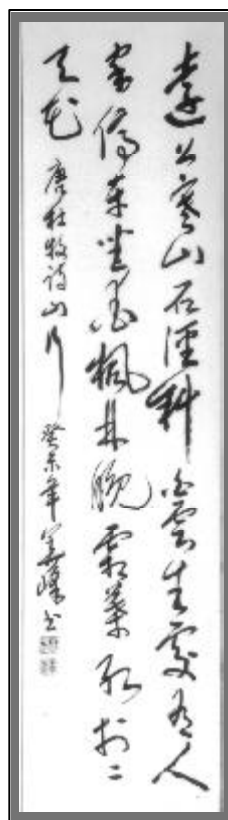 遠上寒山石徑斜白雲生處有人
家停車坐愛楓林晚霜葉紅於二
月花 唐杜牧诗山行 癸未年 峰书